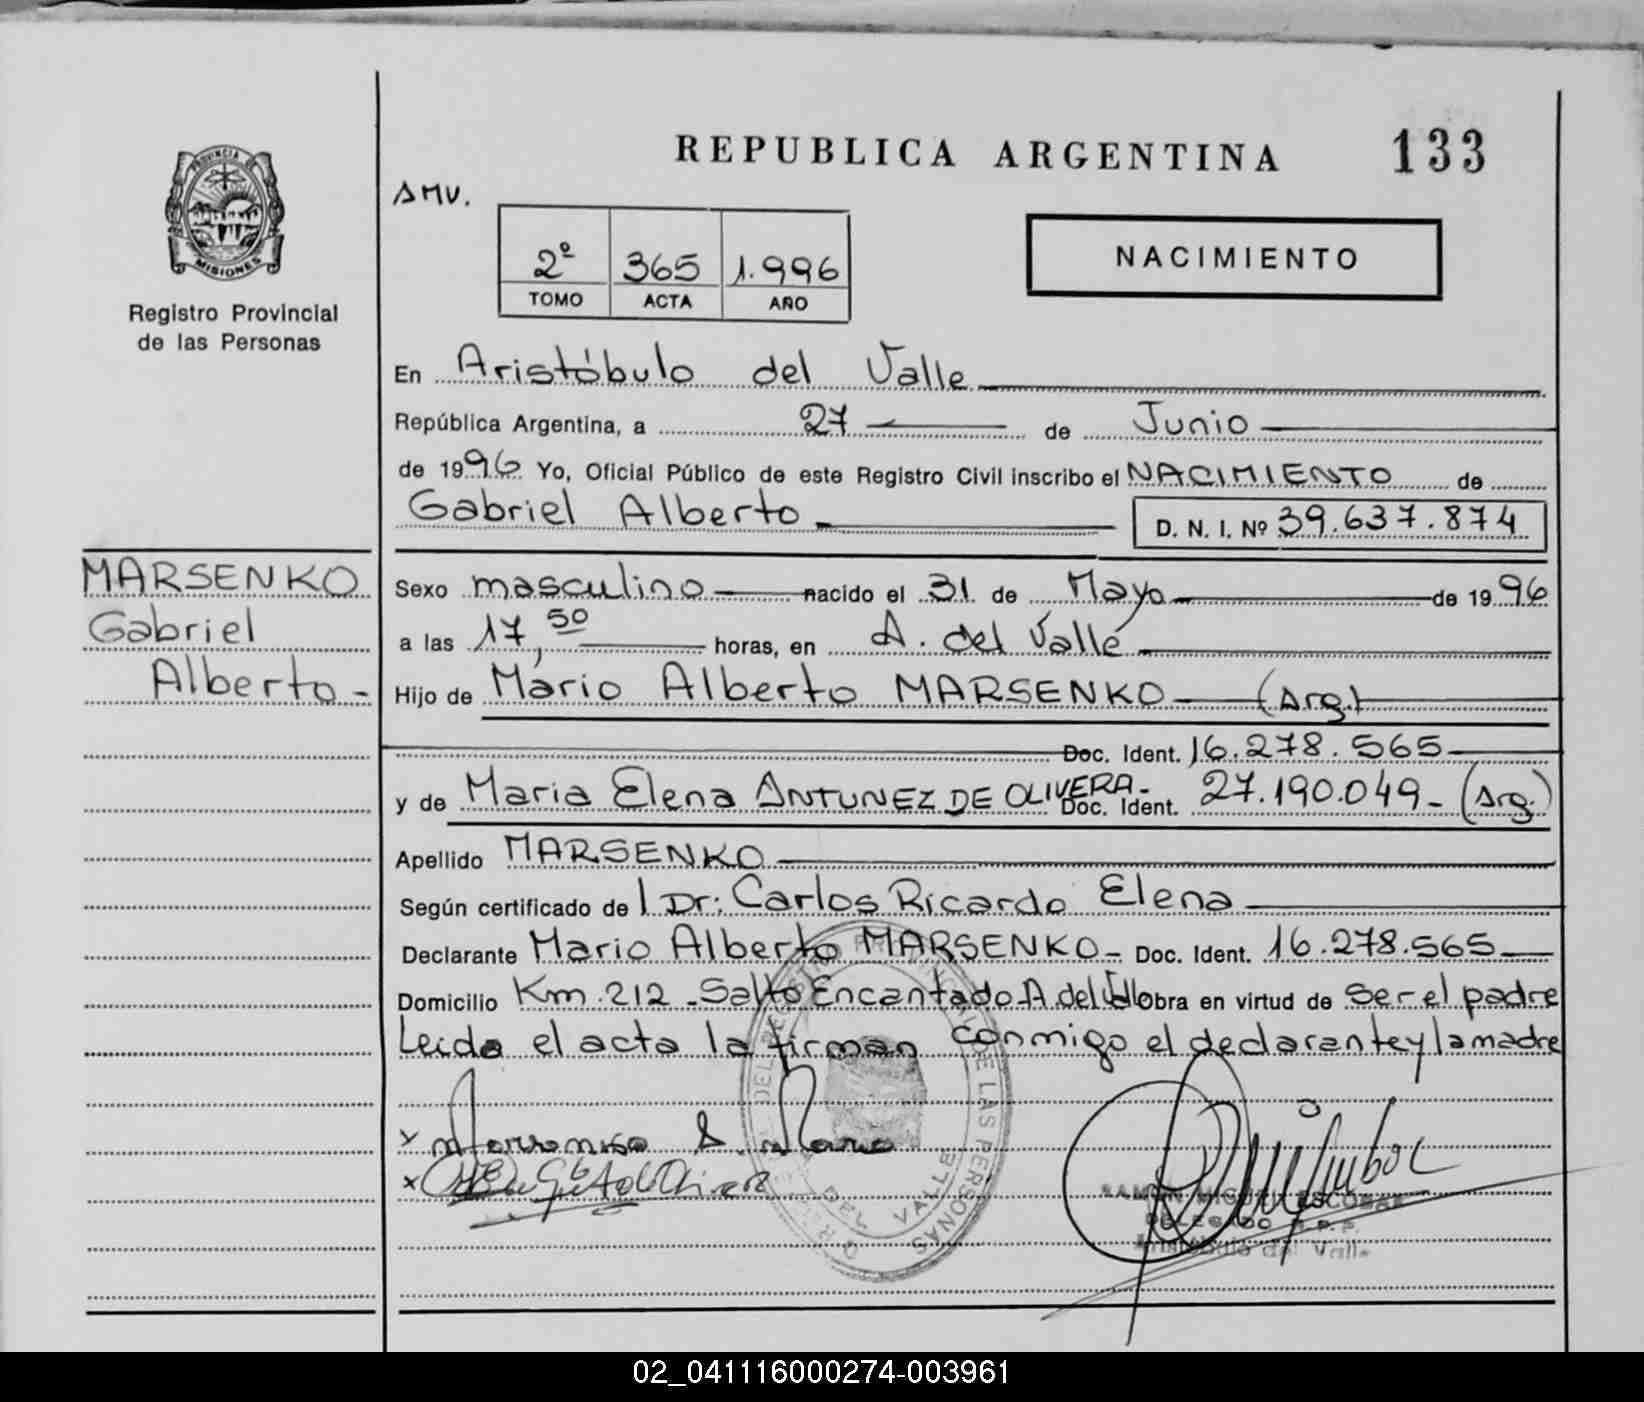 REPUBLICA ARGENTINA 133
PROVINCIA DE
MISIONES
Registro Provincial
de las Personas
AMV.
2º 365 1.996
TOMO ACTA AÑO
NACIMIENTO
En Aristóbulo del Valle
República Argentina, a 27 de Junio
de 1996 Yo, Oficial Público de este Registro Civil inscribo el NACIMIENTO de
Gabriel Alberto D. N. I. Nº 39.637.874
MARSENKO
Gabriel
Alberto-
Sexo masculino nacido el 31 de Mayo de 1996
a las 17,50 horas, en A. del Valle
Hijo de Mario Alberto MARSENKO (Arg.)
Doc. Ident. 16.278.565
y de Maria Elena ANTUNEZ DE OLIVERA- Doc. Ident. 27.190.049- (Arg.)
Apellido MARSENKO
Según certificado de Dr: Carlos Ricardo Elena
Declarante Mario Alberto MARSENKO- Doc. Ident. 16.278.565
Domicilio Km. 212 - Salto Encantado A del Valle Obra en virtud de ser el padre
Leida el acta la firman conmigo el declarante y la madre
DEL VALLE
DE LAS PERSONAS
RAMON MIGUEL ESCOBAR
DELEGADO R.P.P.
Aristóbulo del Valle
02_041116000274-003961